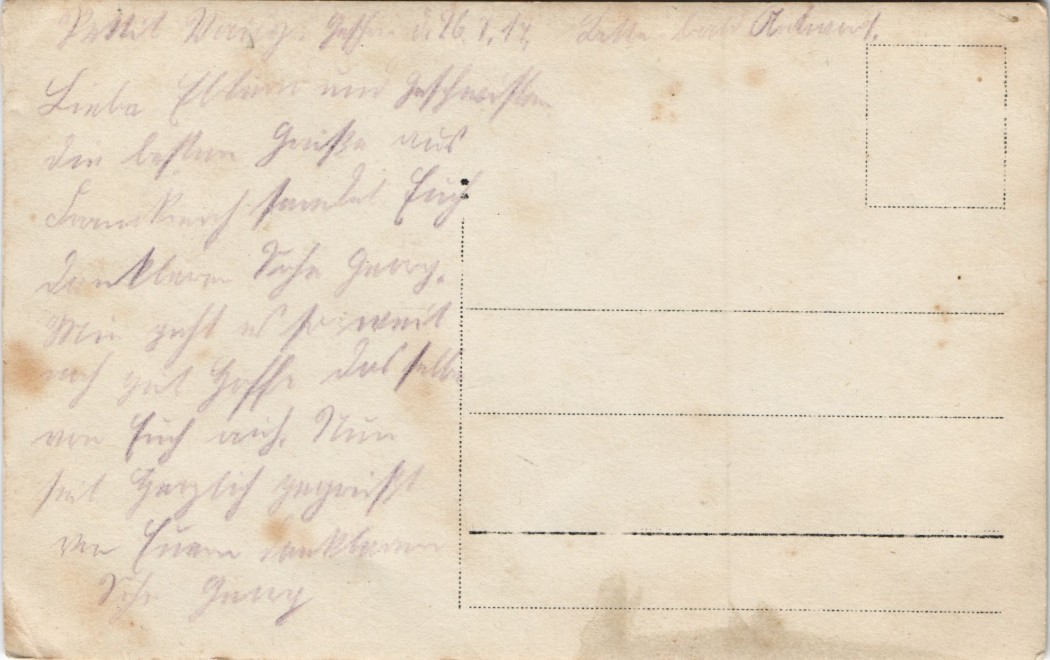 d. 26.1.17. Bitte bald Antwort.
Liebe Eltern und Geschwister
die besten Grüße aus
Frankreich sendet Euch
dankbarer Sohn Georg.
Mir geht es so weit
noch gut Hoffe das selbe
von Euch auch. Nun
seit Herzlich gegrüßt
von Euern dankbaren
Sohn Georg